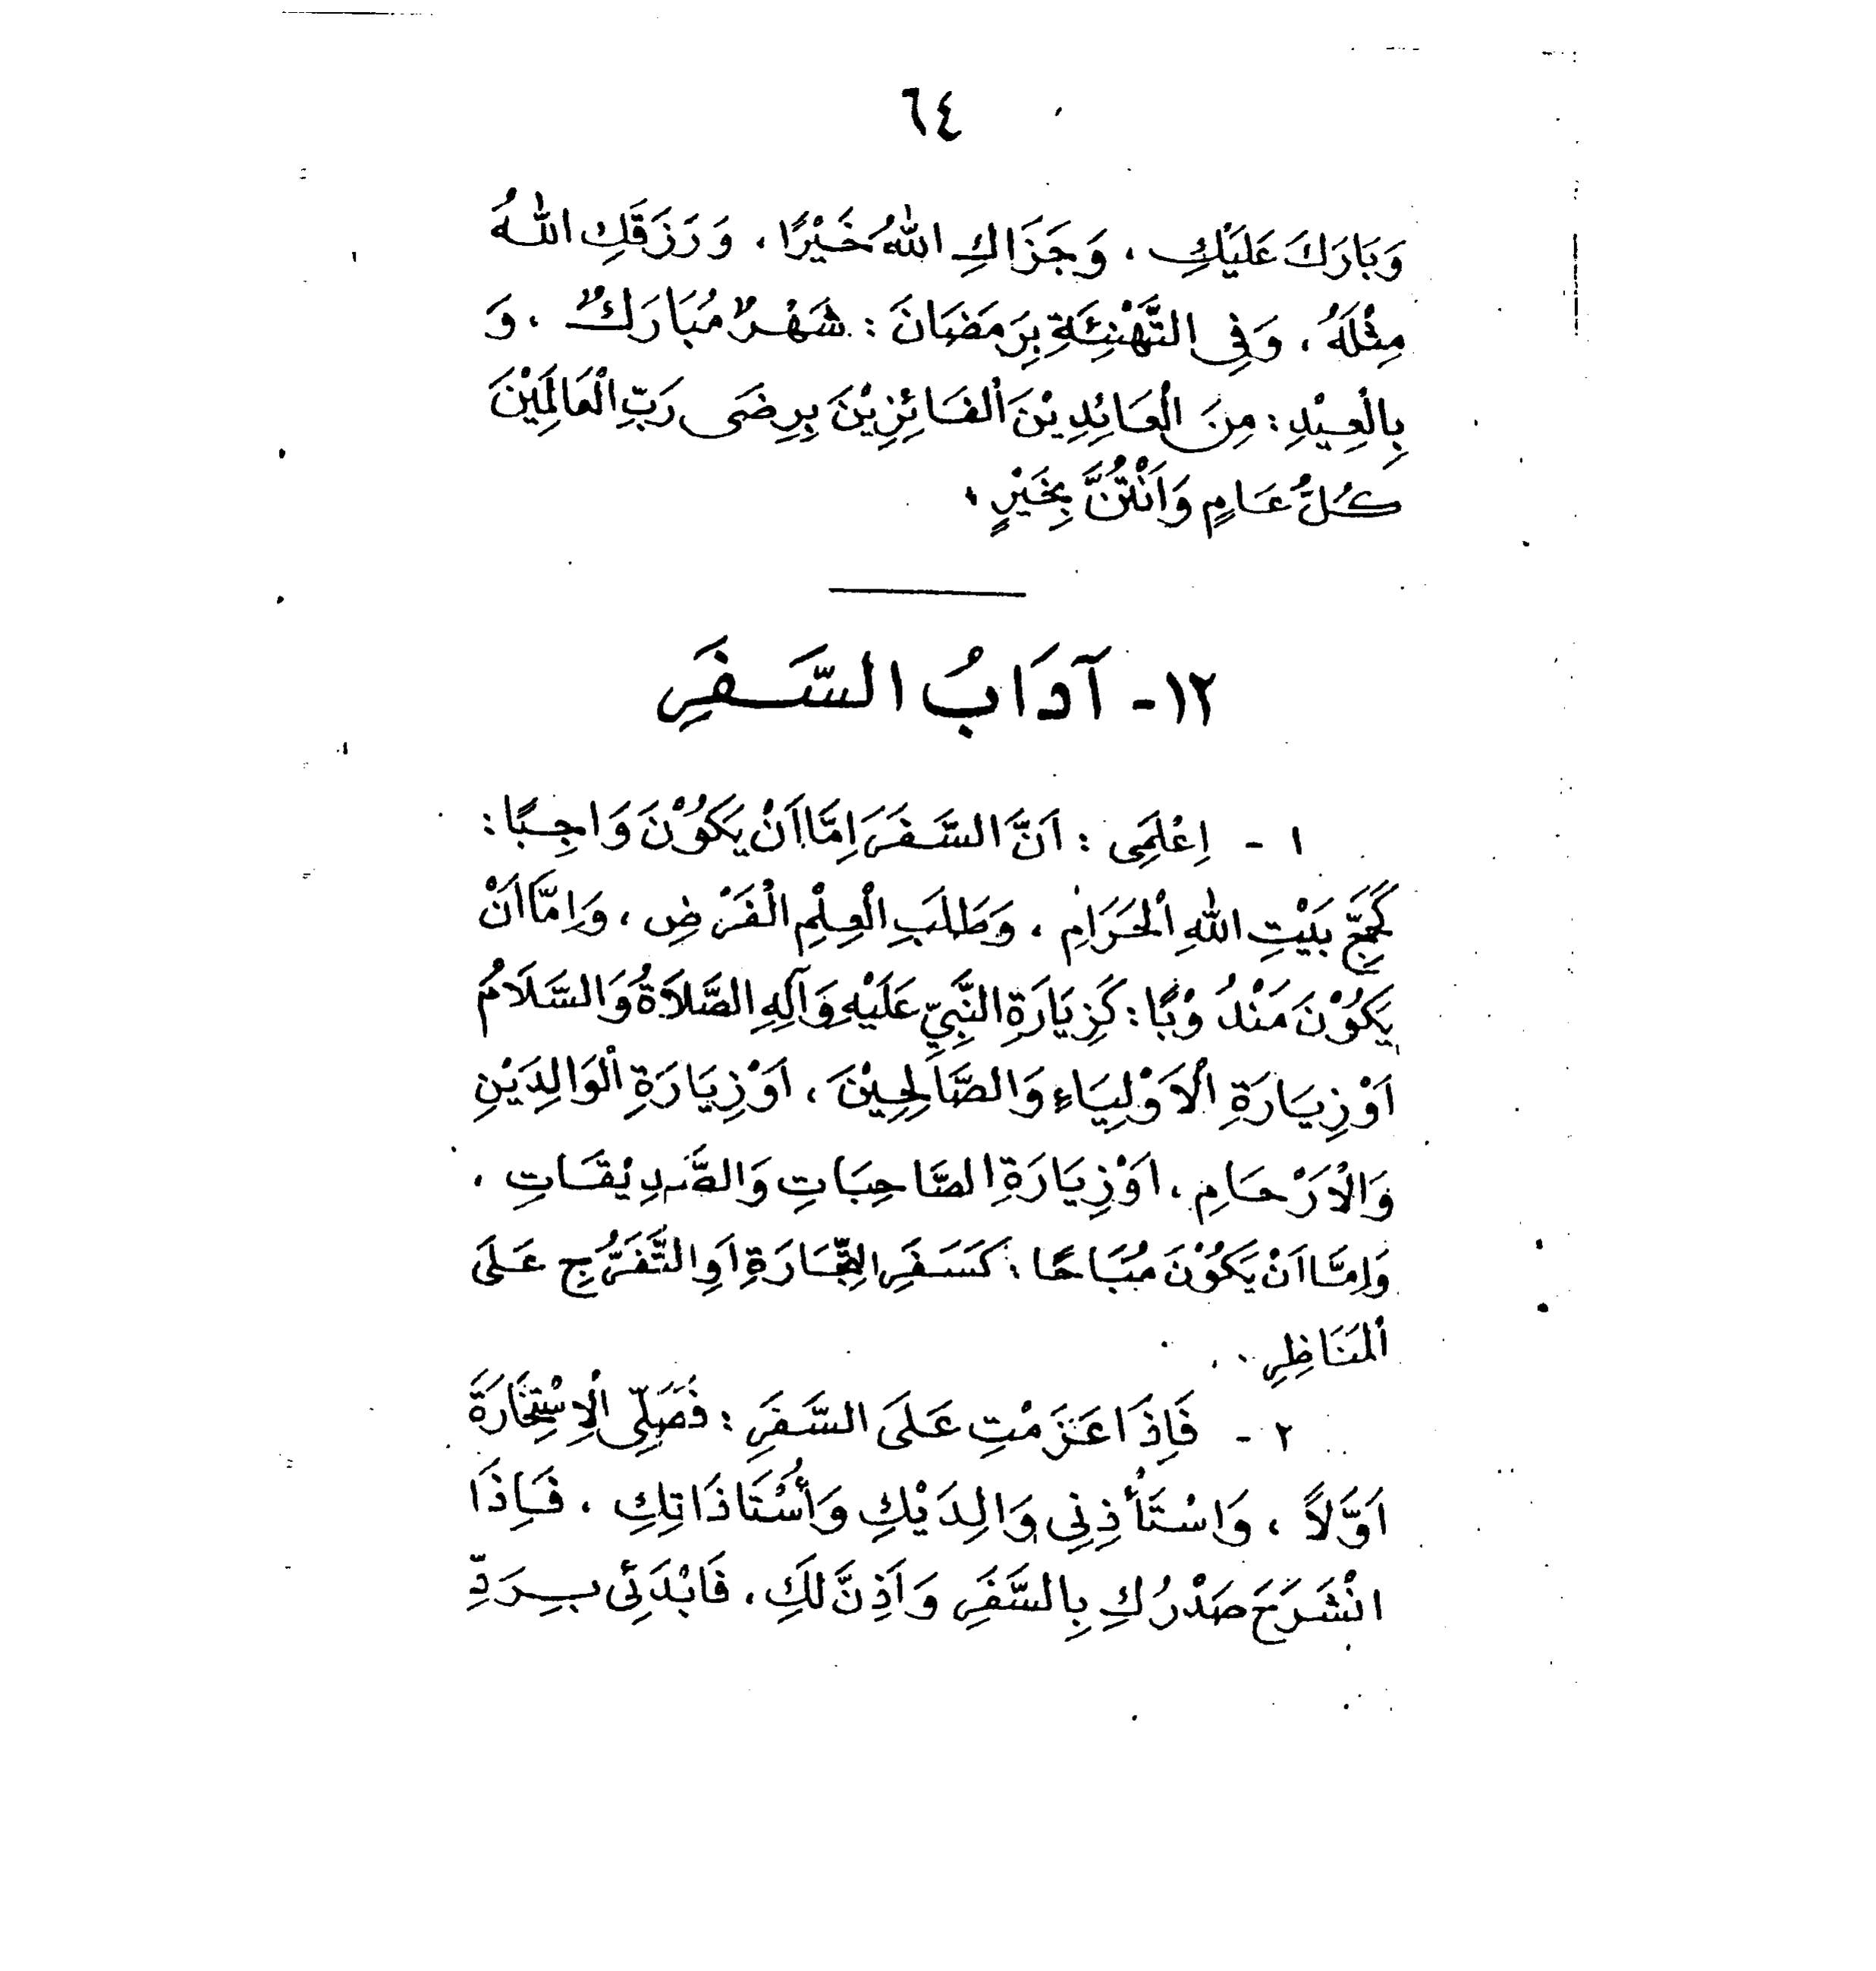 ٦٤
وَبَارَكَ عَلَيْكِ ، وَجَزَاكِ اللهُ خَيْرًا ، وَرَزَقَكِ اللهُ
مِثْلَهُ ، وَفِى التَّهْنِئَةِ بِرَمَضَانَ : شَهْرٌ مُبَارَكٌ . وَ
بِالْعِيْدِ : مِنَ الْعَائِدِيْنَ الْفَائِزِيْنَ بِرِضَى رَبِّ الْعَالَمِيْنَ
كُلُّ عَامٍ وَاَنْتُنَّ بِخَيْرٍ ،
١٢- آدَابُ السَّفَرِ
١ - اِعْلَمِى : اَنَّ السَّفَرَ اِمَّا اَنْ يَكُوْنَ وَاجِبًا :
كَحَجِّ بَيْتِ اللهِ الْحَرَامِ ، وَطَلَبِ الْعِلْمِ الْفَرْضِ ، وَاِمَّا اَنْ
يَكُوْنَ مَنْدُوْبًا : كَزِيَارَةِ النَّبِيِّ عَلَيْهِ وَآلِهِ الصَّلَاةُ وَالسَّلَامُ
اَوْ زِيَارَةِ الْاَوْلِيَاءِ وَالصَّالِحِيْنَ ، اَوْ زِيَارَةِ الْوَالِدَيْنِ
وَالْاَرْحَامِ ، اَوْ زِيَارَةِ الصَّاحِبَاتِ وَالصَّدِيْقَاتِ .
وَاِمَّا اَنْ يَكُوْنَ مُبَاحًا : كَسَفَرِ التِّجَارَةِ اَوِ التَّفَرُّجِ عَلَى
الْمَنَاظِرِ .
٢ - فَاِذَا عَزَمْتِ عَلَى السَّفَرِ : فَصَلِّى الْاِسْتِخَارَةَ
اَوَّلاً ، وَاسْتَأْذِنِى وَالِدَيْكِ وَأُسْتَاذَاتِكِ . فَاِذَا
انْشَرَحَ صَدْرُكِ بِالسَّفَرِ وَاَذِنَّ لَكِ ، فَابْدَئِى بِرَدِّ